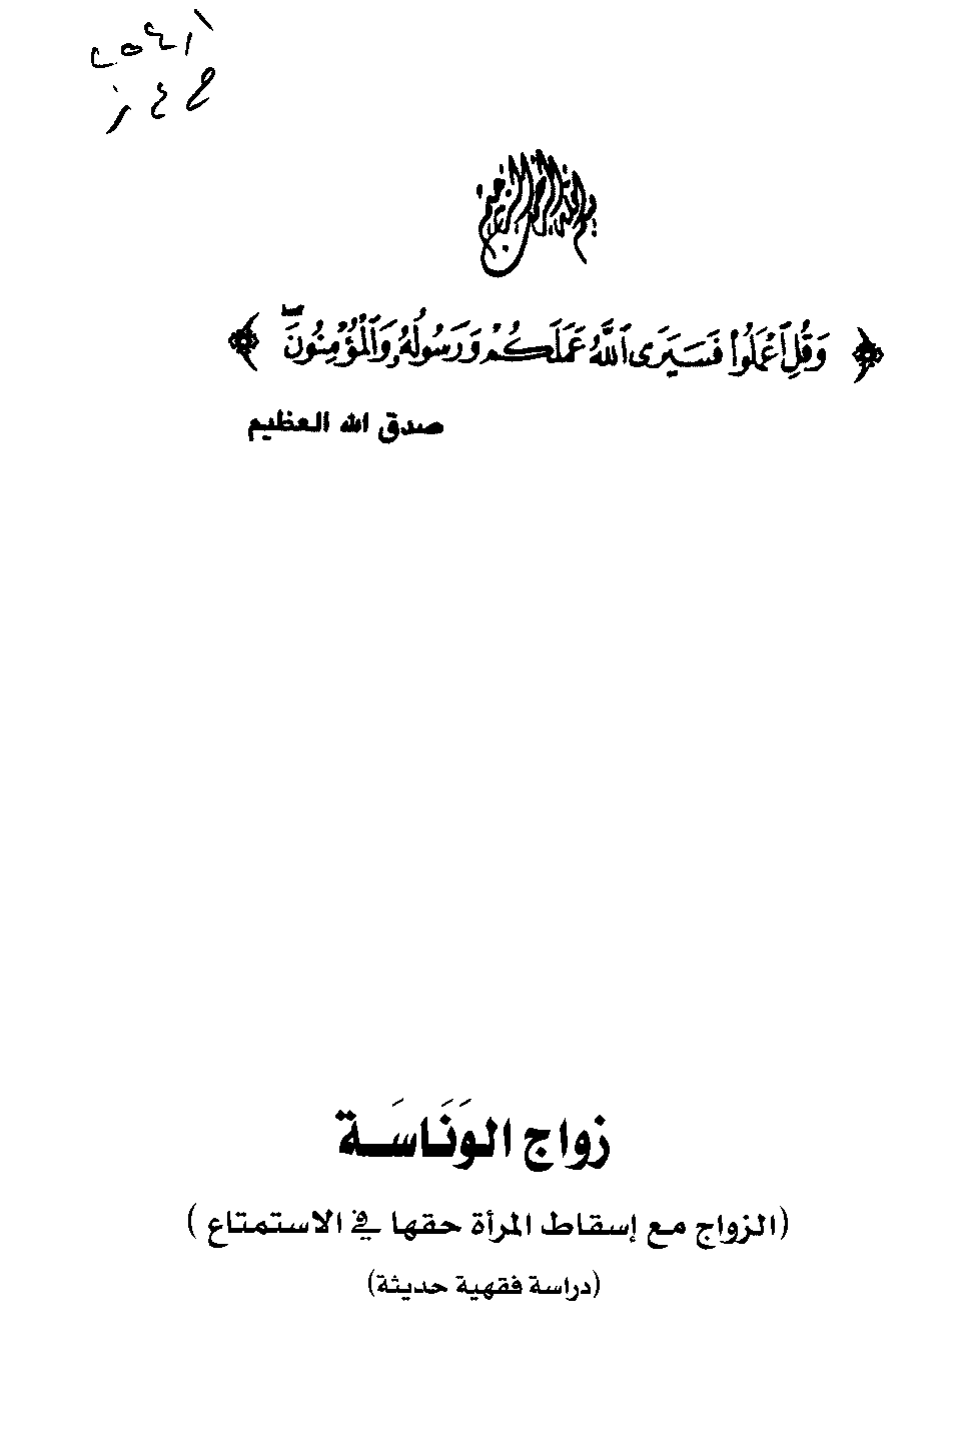 بسم الله الرحمن الرحيم
﴿ وَقُلِ ٱعْمَلُوا۟ فَسَيَرَى ٱللَّهُ عَمَلَكُمْ وَرَسُولُهُۥ وَٱلْمُؤْمِنُونَ ۖ ﴾
صدق الله العظيم
زواج الوَنَاسَـة
(الزواج مع إسقاط المرأة حقها في الاستمتاع )
(دراسة فقهية حديثة)